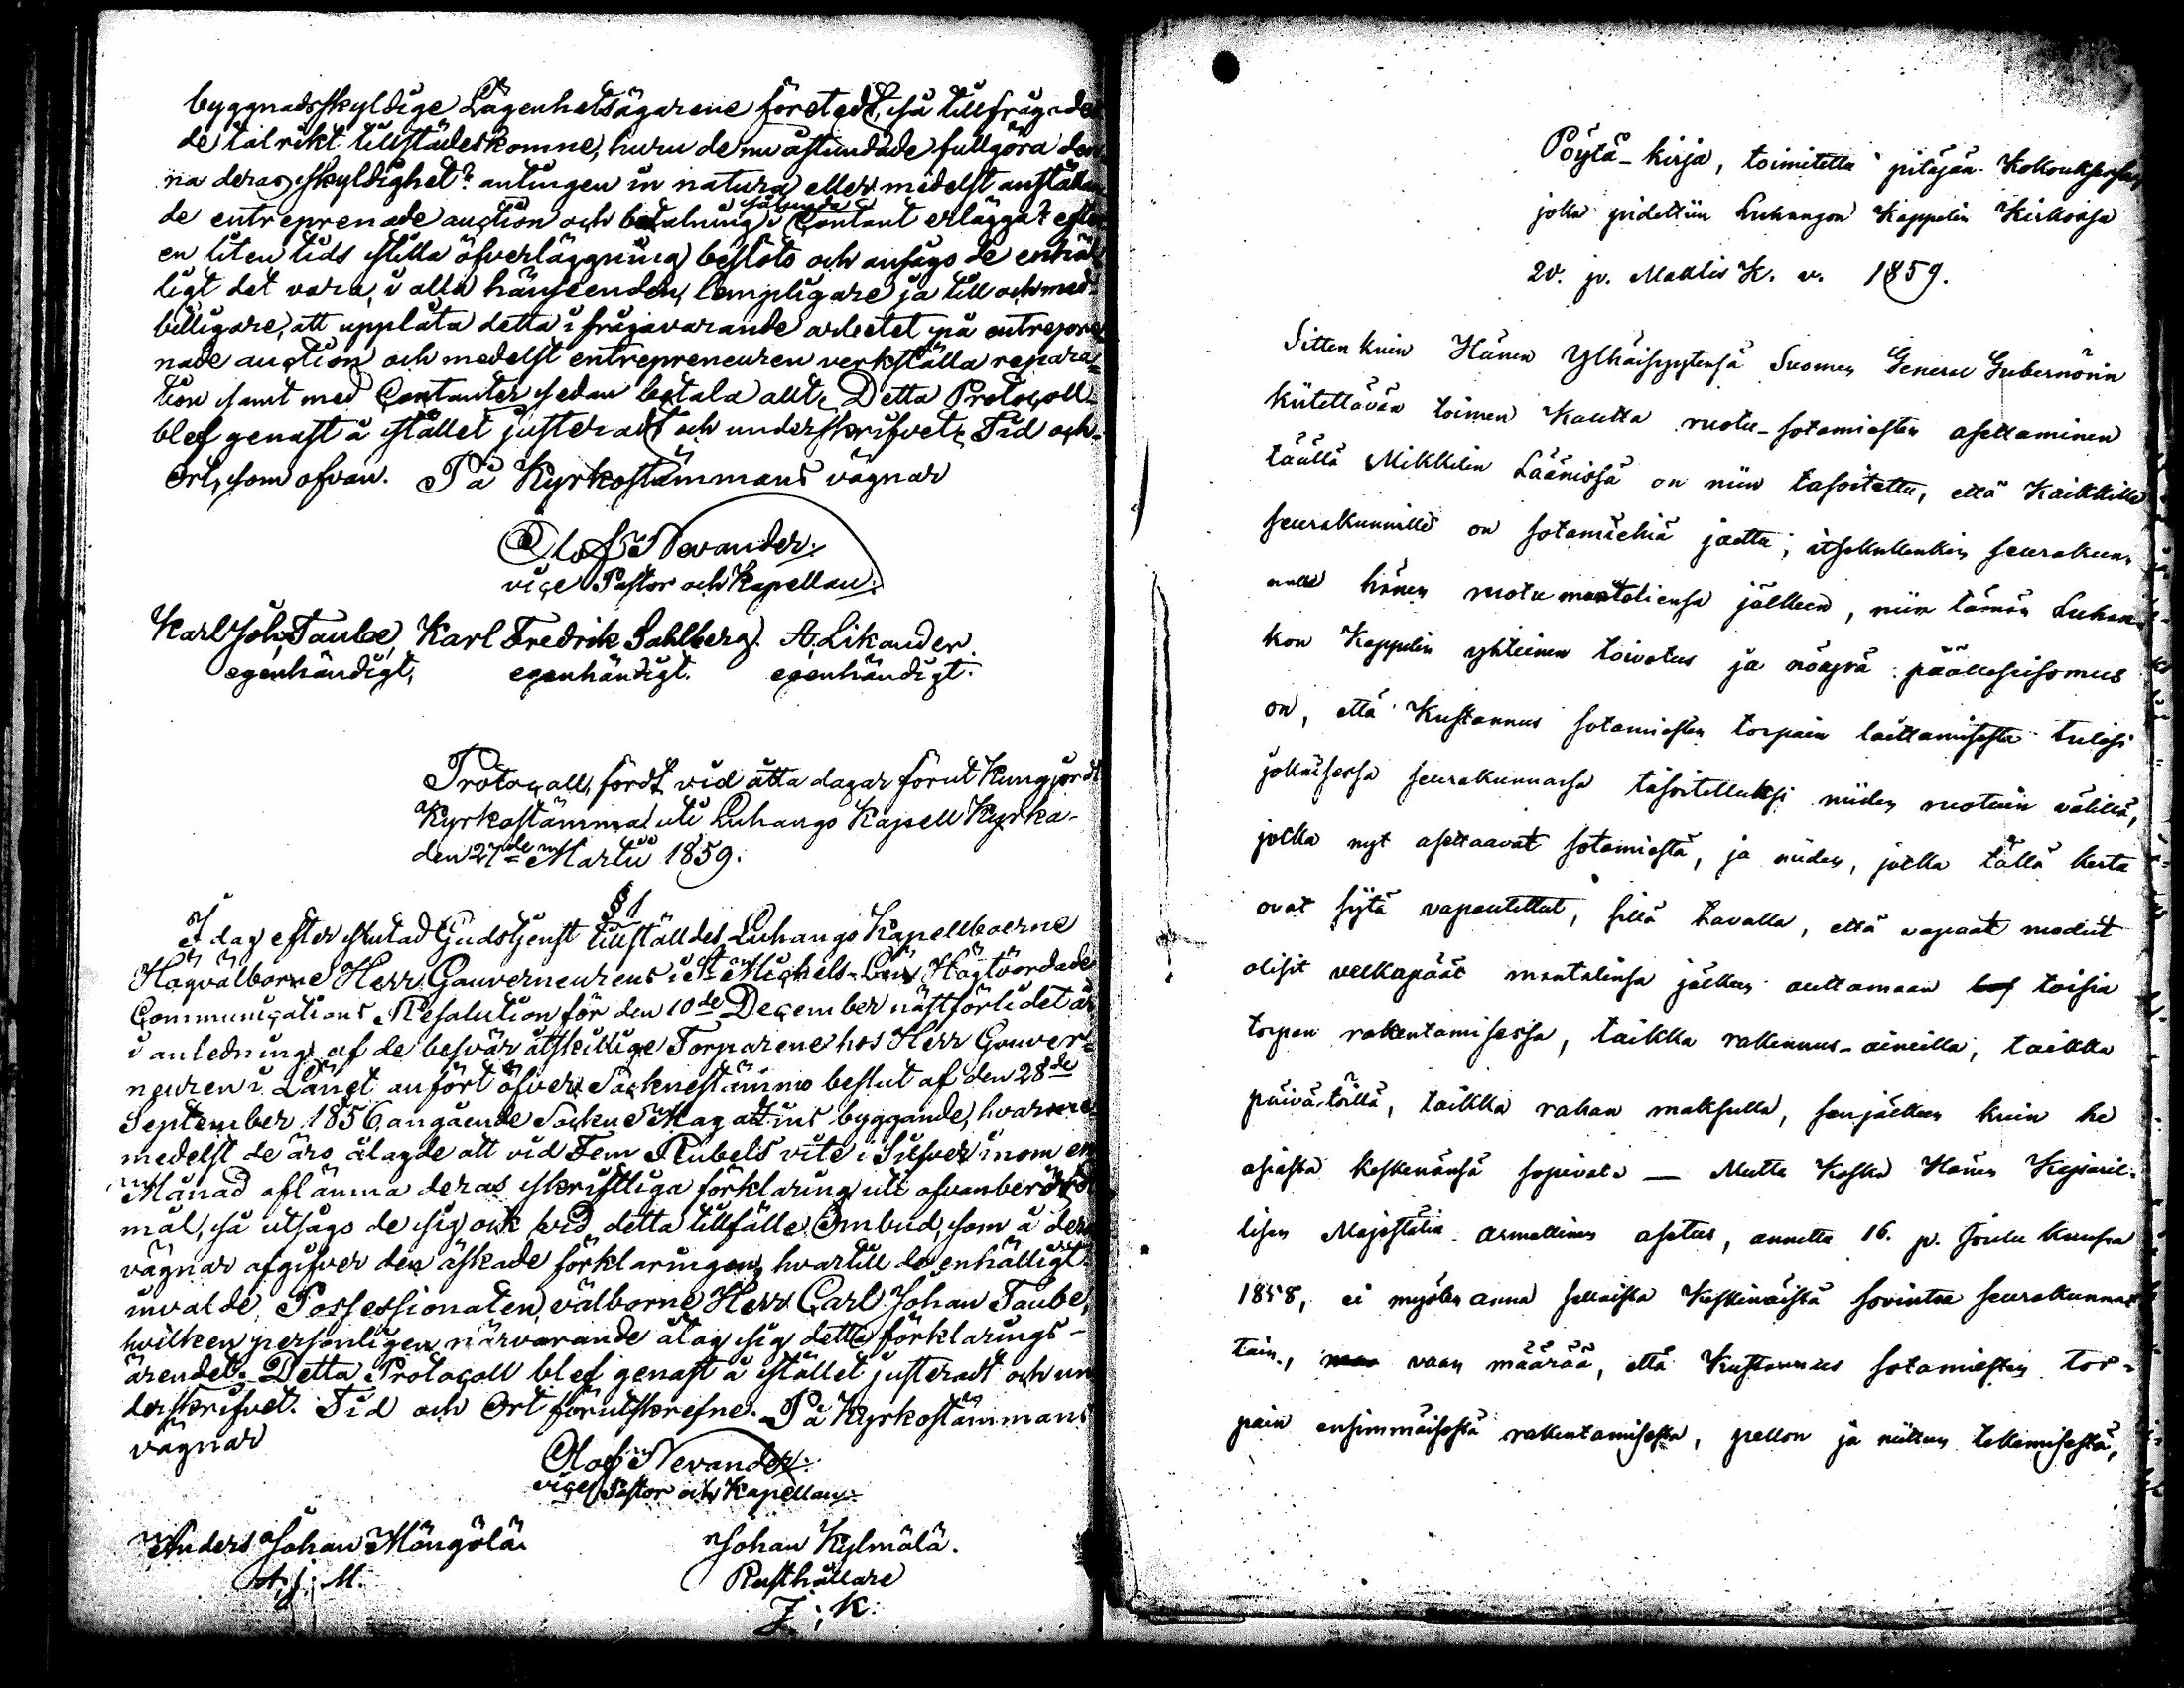 byggnadsskyldige Lägenhetsägarene företeds, så tillfrågades
de talrikt tillstädeskomne, huru de nu åstundade fullgöra den
na deras skyldighet? antingen in natura eller medelst anställan
de entreprenade auction och betalning i Contant erlägga? efter
en liten tids stilla öfverläggning beslöts och ansågs de enhäl
ligt det vara, i alla hänseenden, lempligare ja till och med
billigare, att upplåta detta i frågavarande arbetet på entrepre
nade auction och medelst entrepreneuren verkställa repara=
tion samt med Contanter sedan betala allt. Detta Protocoll
blef genast å stället justeradt och underskrifvet. Tid och
Ort, som ofvan. På Kyrkostämmans vägnar
Olof Nevander
vice Pastor och Kapellan.
Karl Joh. Taube, Karl Fredrik Sahlberg. A. Likander.
egenhändigt, egenhändigt. egenhändigt.
Protocall, fördt vid åtta dagar förut kungjordt
Kyrkostämma uti Luhango Kapell Kyrka
den 27de Martii 1859.
§ 1
I dag efter slutad Gudstjenst tillställdes Luhango Kapellboerne
Högvälborne Herr Gouverneurens i St Michels Län Högtvördade
Communications Resolution för den 10de December nästförlidet år
i anledning af de besvär åtskillige Torparene hos Herr Gouver=
neuren i Länet anfört öfver Socknestämmo beslut af den 28de
September 1856, angående Sockne Magatzins byggande, hvar
medelst de äro ålagde att vid Fem Rubels vite i Silfver inom en
Månad aflämna deras skriftliga förklaring uti ofvanberörde
mål, så utsågo de sig ock vid detta tillfälle Ombud, som å deras
vägnar afgifver den äskade förklaringen, hvartill de enhälligt
invalde Possessionaten, välborne Herr Carl Johan Taube,
hvilken personligen närvarande åtog sig detta förklarings-
ärendet. Detta Protocoll blef genast å stället justeradt och un
derskrifvet. Tid och Ort förutskrefne. På Kyrkostämmans
vägnar
Olof Nevander.
vice Pastor och Kapellan.
Anders Johan Mängölä. Johan Kylmälä.
A. J. M. Rusthållare
J. K.
Pöytä-kirja, toimitettu pitäjän Kokouksessa,
joka pidettiin Luhangon Kappelin Kirkossa
20. p. Maalis K. v. 1859.
Sitten kuin Hänen Ylhäisyytensä Suomen General Gubernörin
kiitettävän toimen Kautta ruotu-sotamiesten asettaminen
täällä Mikkelin Läänissä on niin tasoitettu, että Kaikkille
seurakunnille on sotamiehiä jaettu, itsekullenkin seurakun-
nalle hänen ruotu mantaliensa jälkeen, niin tämän Luhan-
kon Kappelin yhteinen toivotus ja nöyrä päälleseisomus
on, että Kustannus sotamiesten torpain laittamisesta tulisi
jokaisessa seurakunnassa tasoitetuksi niiden ruotuin välillä,
jotka nyt asettaavat sotamiestä, ja niiden, jotka tällä kerta
ovat siitä vapautettut, sillä tavalla, että vapaat ruodut
olisit velkapäät mantalinsa jälkeen auttamaan toisia
torpan rakentamisessa, taikka rakennus-aineilla, taikka
päivätöillä, taikka rahan maksulla, senjälkeen kuin he
asiasta keskenänsä sopivat. — Mutta Koska Hänen Keisaril-
lisen Majestätin armollinen asetus, annettu 16. p. Joulu kuussa
1858, ei myöten anna sellaista Keskinäistä sovintoa seurakunnat
tain, vaan määrää, että Kustannus sotamiesten tor-
pain ensimmäisestä rakentamisesta, pellon ja niittun tekemisestä,